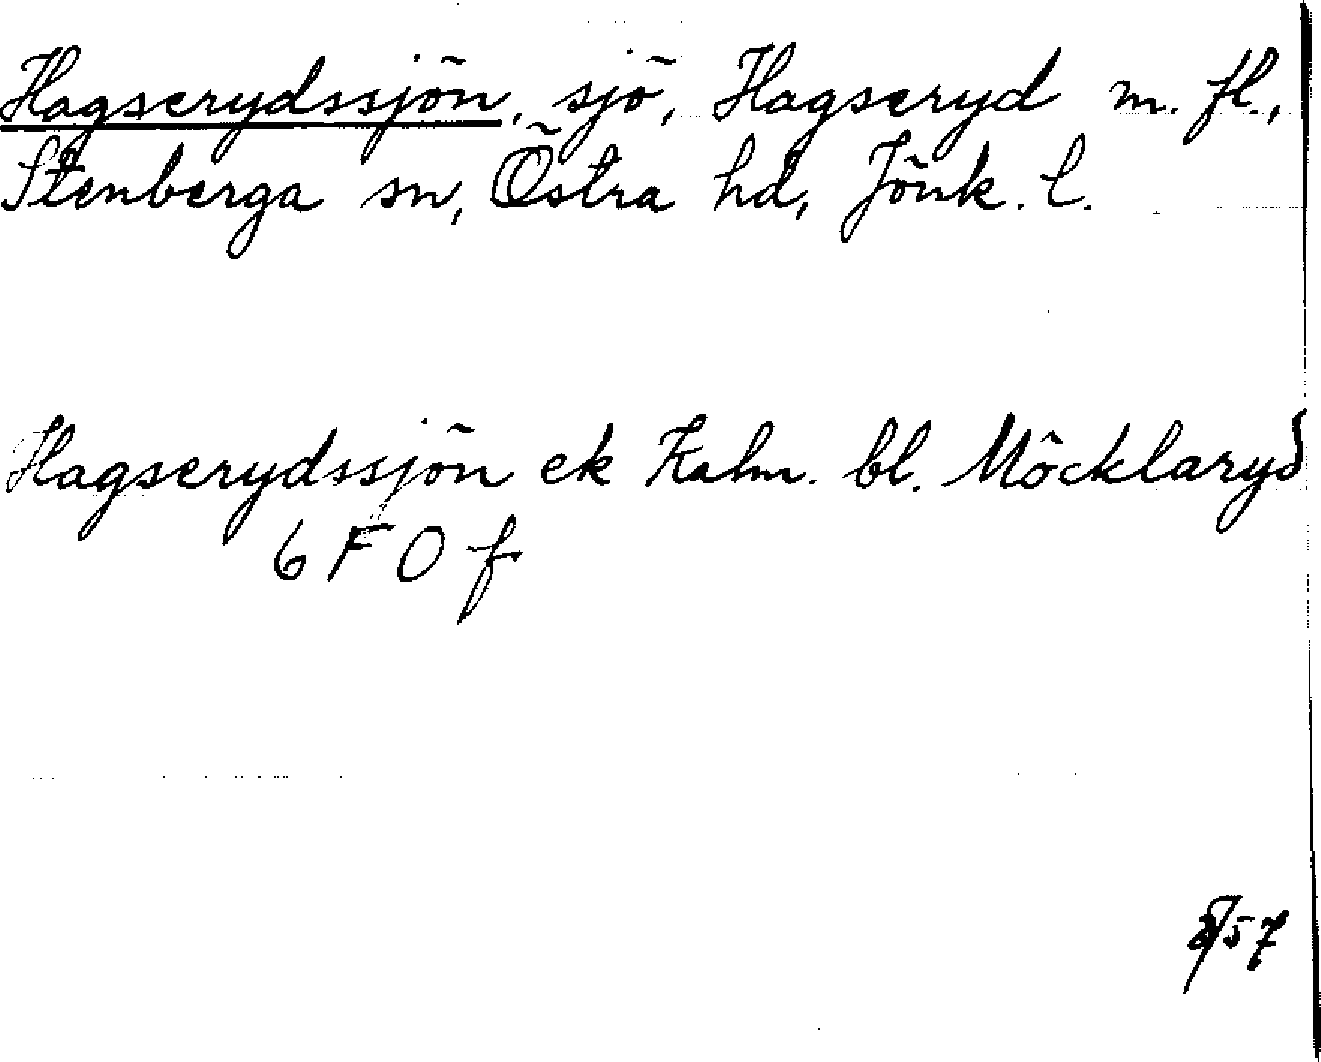 Hagserydssjön, sjö, Hagseryd m. fl.,
Stenberga sn, Östra hd, Jönk. l.
Hagserydssjön ek Kalm. bl. Möcklaryd
6 F 0 f